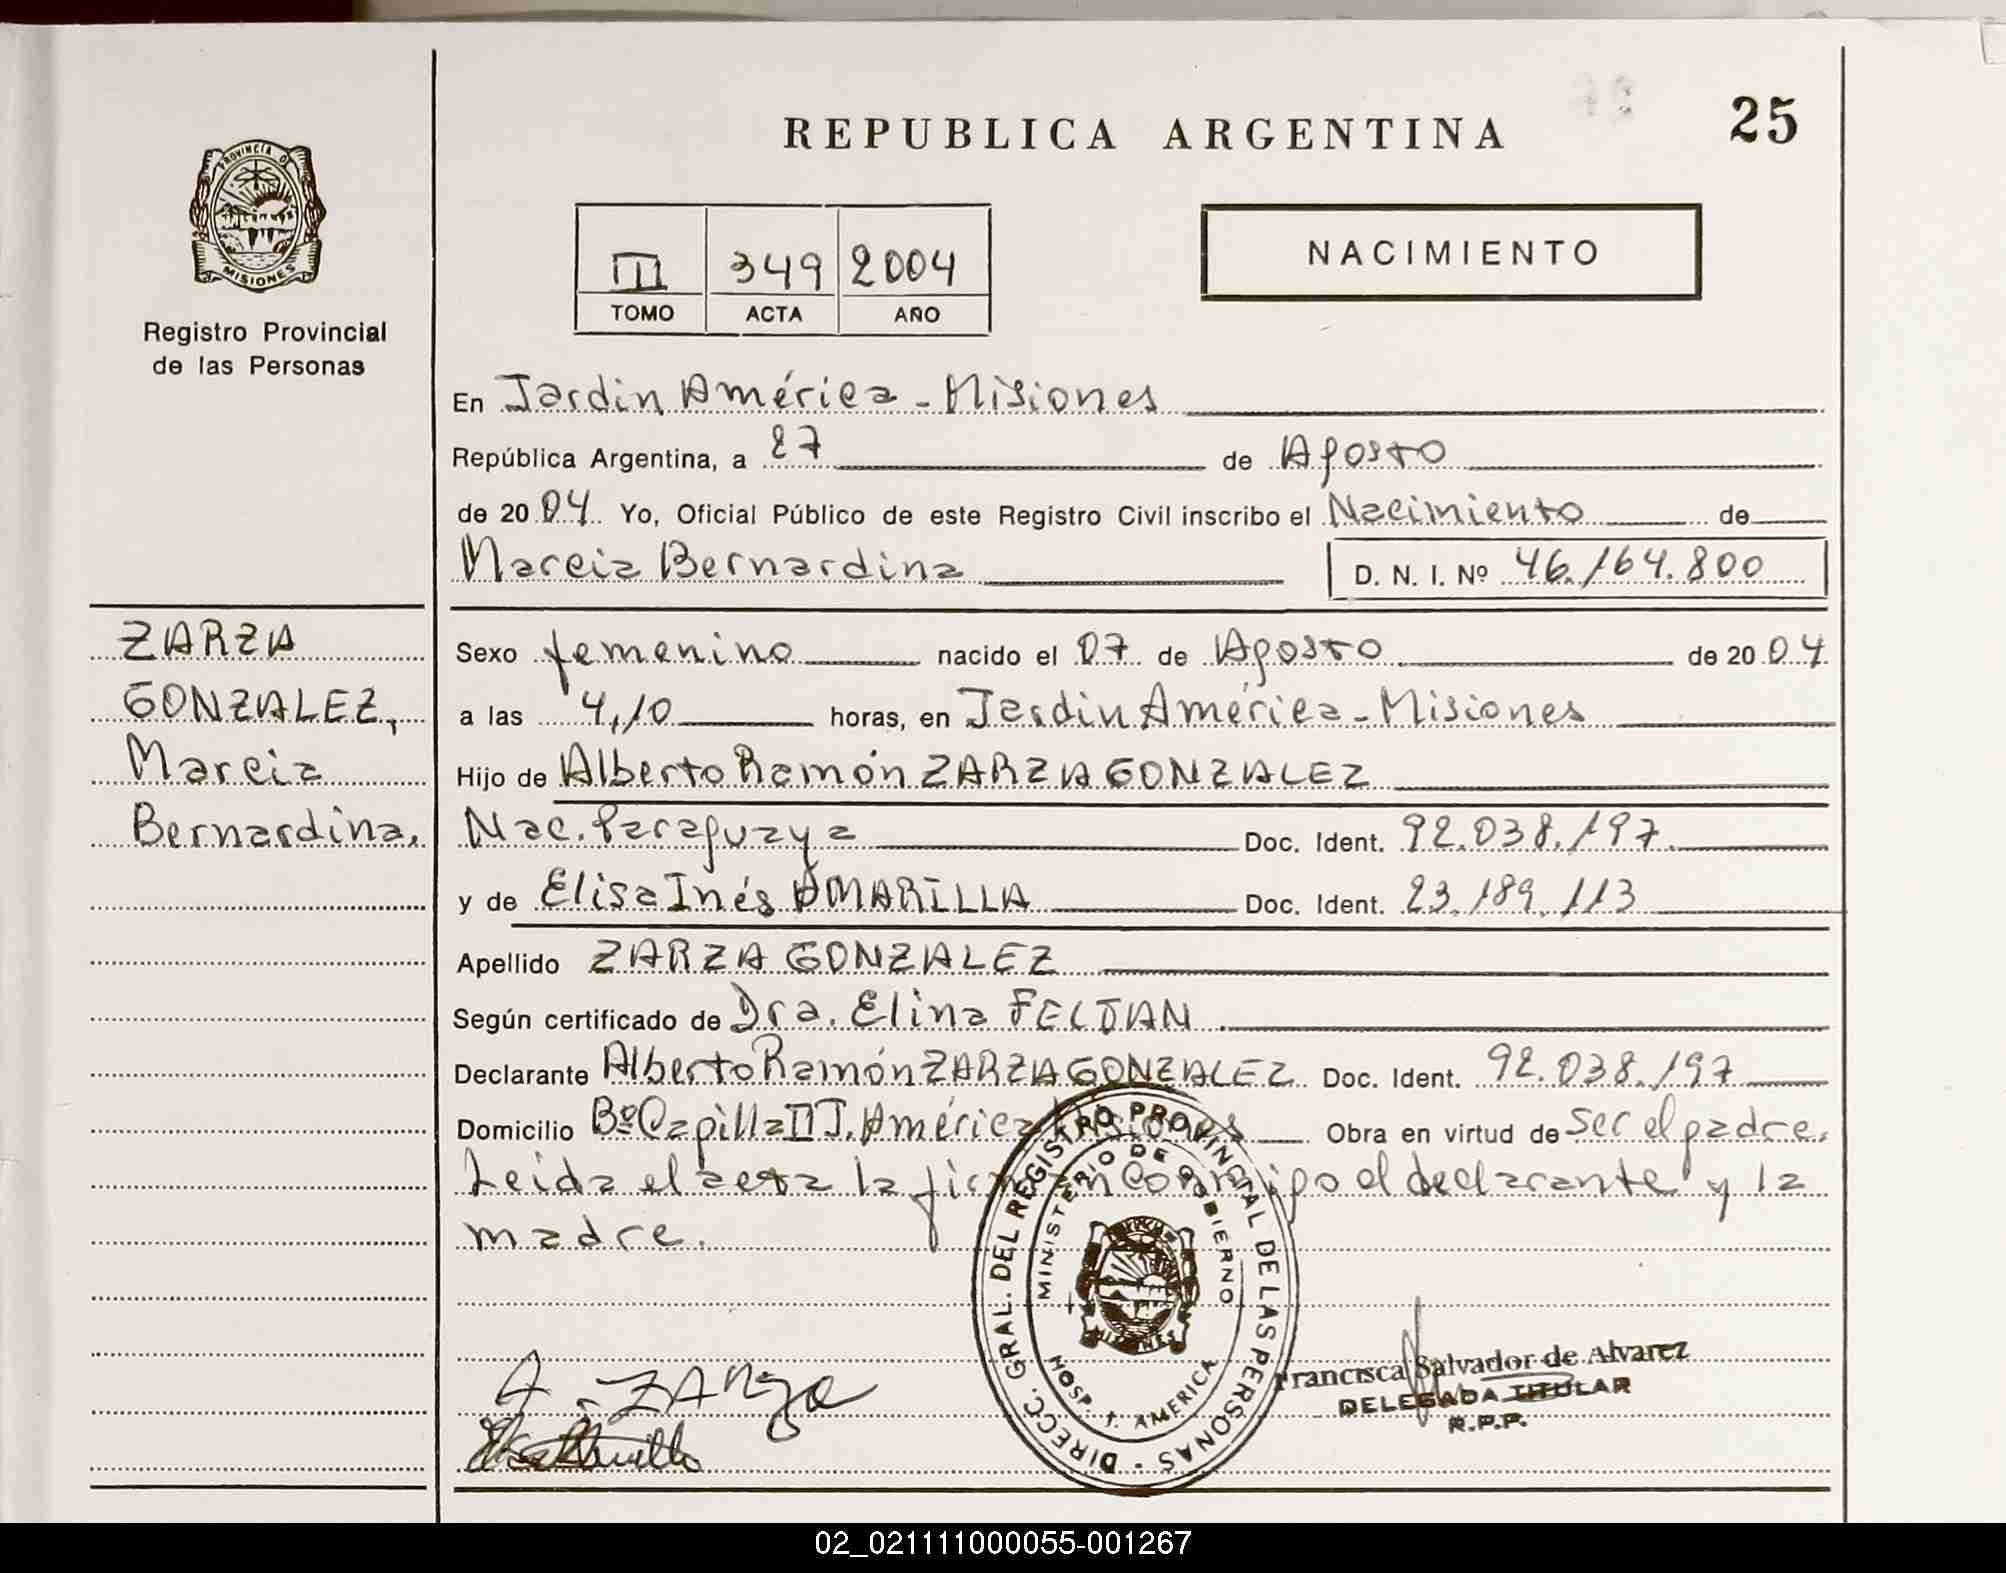 REPUBLICA ARGENTINA
25
PROVINCIA DE
MISIONES
Registro Provincial
de las Personas
III 349 2004
TOMO ACTA AÑO
NACIMIENTO
En Jardin América - Misiones
República Argentina, a 27 de Agosto
de 2004 Yo, Oficial Público de este Registro Civil inscribo el Nacimiento de
Marcia Bernardina D. N. I. Nº 46.164.800
ZARZA
GONZALEZ,
Marcia
Bernardina.
Sexo femenino nacido el 07 de Agosto de 2004
a las 4,10 horas, en Jardin América - Misiones
Hijo de Alberto Ramón ZARZA GONZALEZ
Nac. Paraguaya Doc. Ident. 92.038.197
y de Elisa Inés AMARILLA Doc. Ident. 23.189.113
Apellido ZARZA GONZALEZ
Según certificado de Dra. Elina
Declarante Alberto Ramón ZARZA GONZALEZ Doc. Ident. 92.038.197
Domicilio Bº Capilla II J. América Misiones Obra en virtud de ser el padre.
Leida el acta la firman conmigo el declarante y la
madre.
DIRECC. GRAL. DEL REGISTRO PROVINCIAL DE LAS PERSONAS
MINISTERIO DE GOBIERNO
MISIONES
HOSP. J. AMERICA
A. ZARza
Francisca Salvador de Alvarez
DELEGADA TITULAR
R.P.P.
02_021111000055-001267